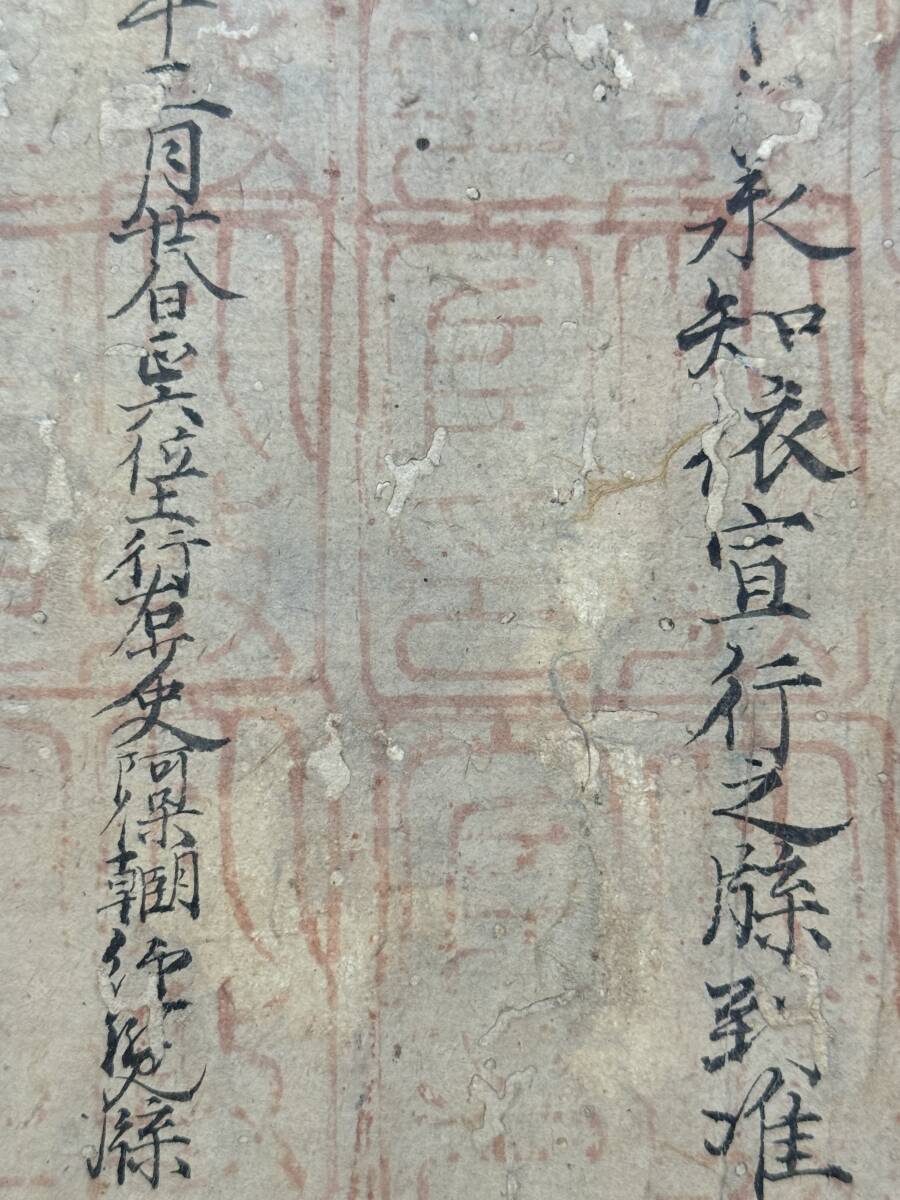 承知依宣行之牒到准
年月廿八日正六位上行右少史阿保朝臣経覧牒